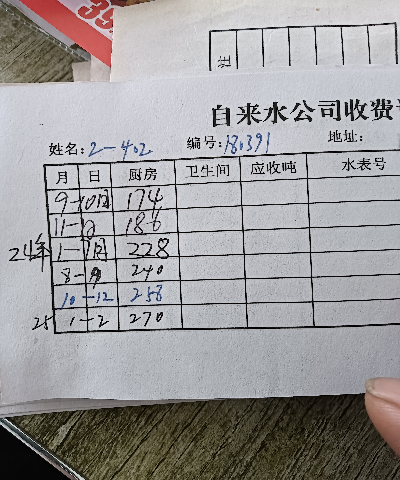 自来水公司收费
姓名: 2-402 编号: 180391 地址:
月 日 厨房 卫生间 应收吨 水表号
9-10月 174
11-12 186
24年 1-7月 228
8-9 240
10-12 258
25 1-2 270